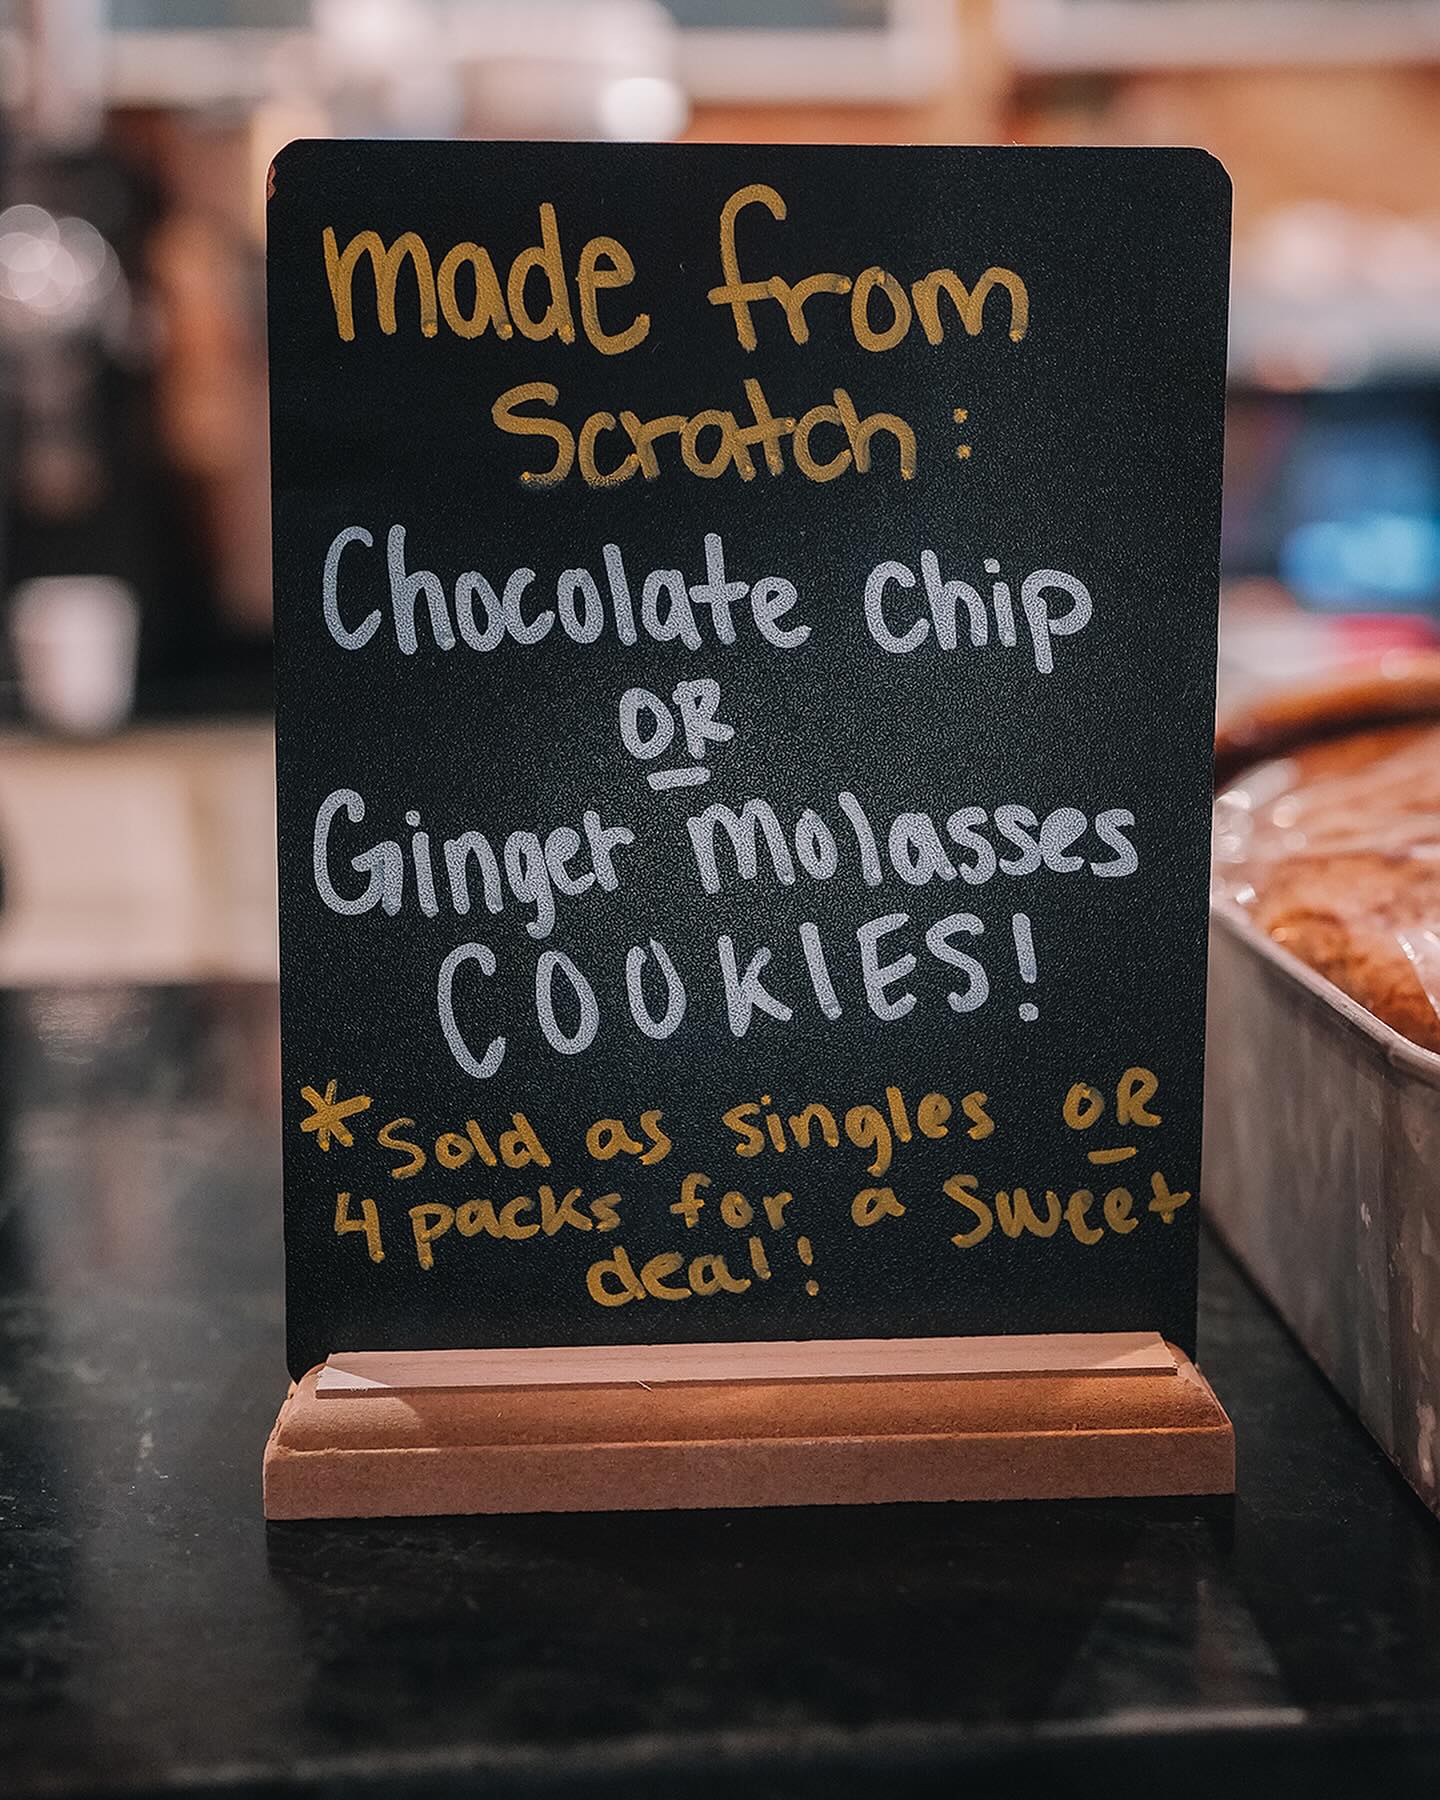 made from
Scratch:
Chocolate Chip
OR
Ginger Molasses
COOKIES!
*Sold as singles OR
4 packs for a Sweet
deal!